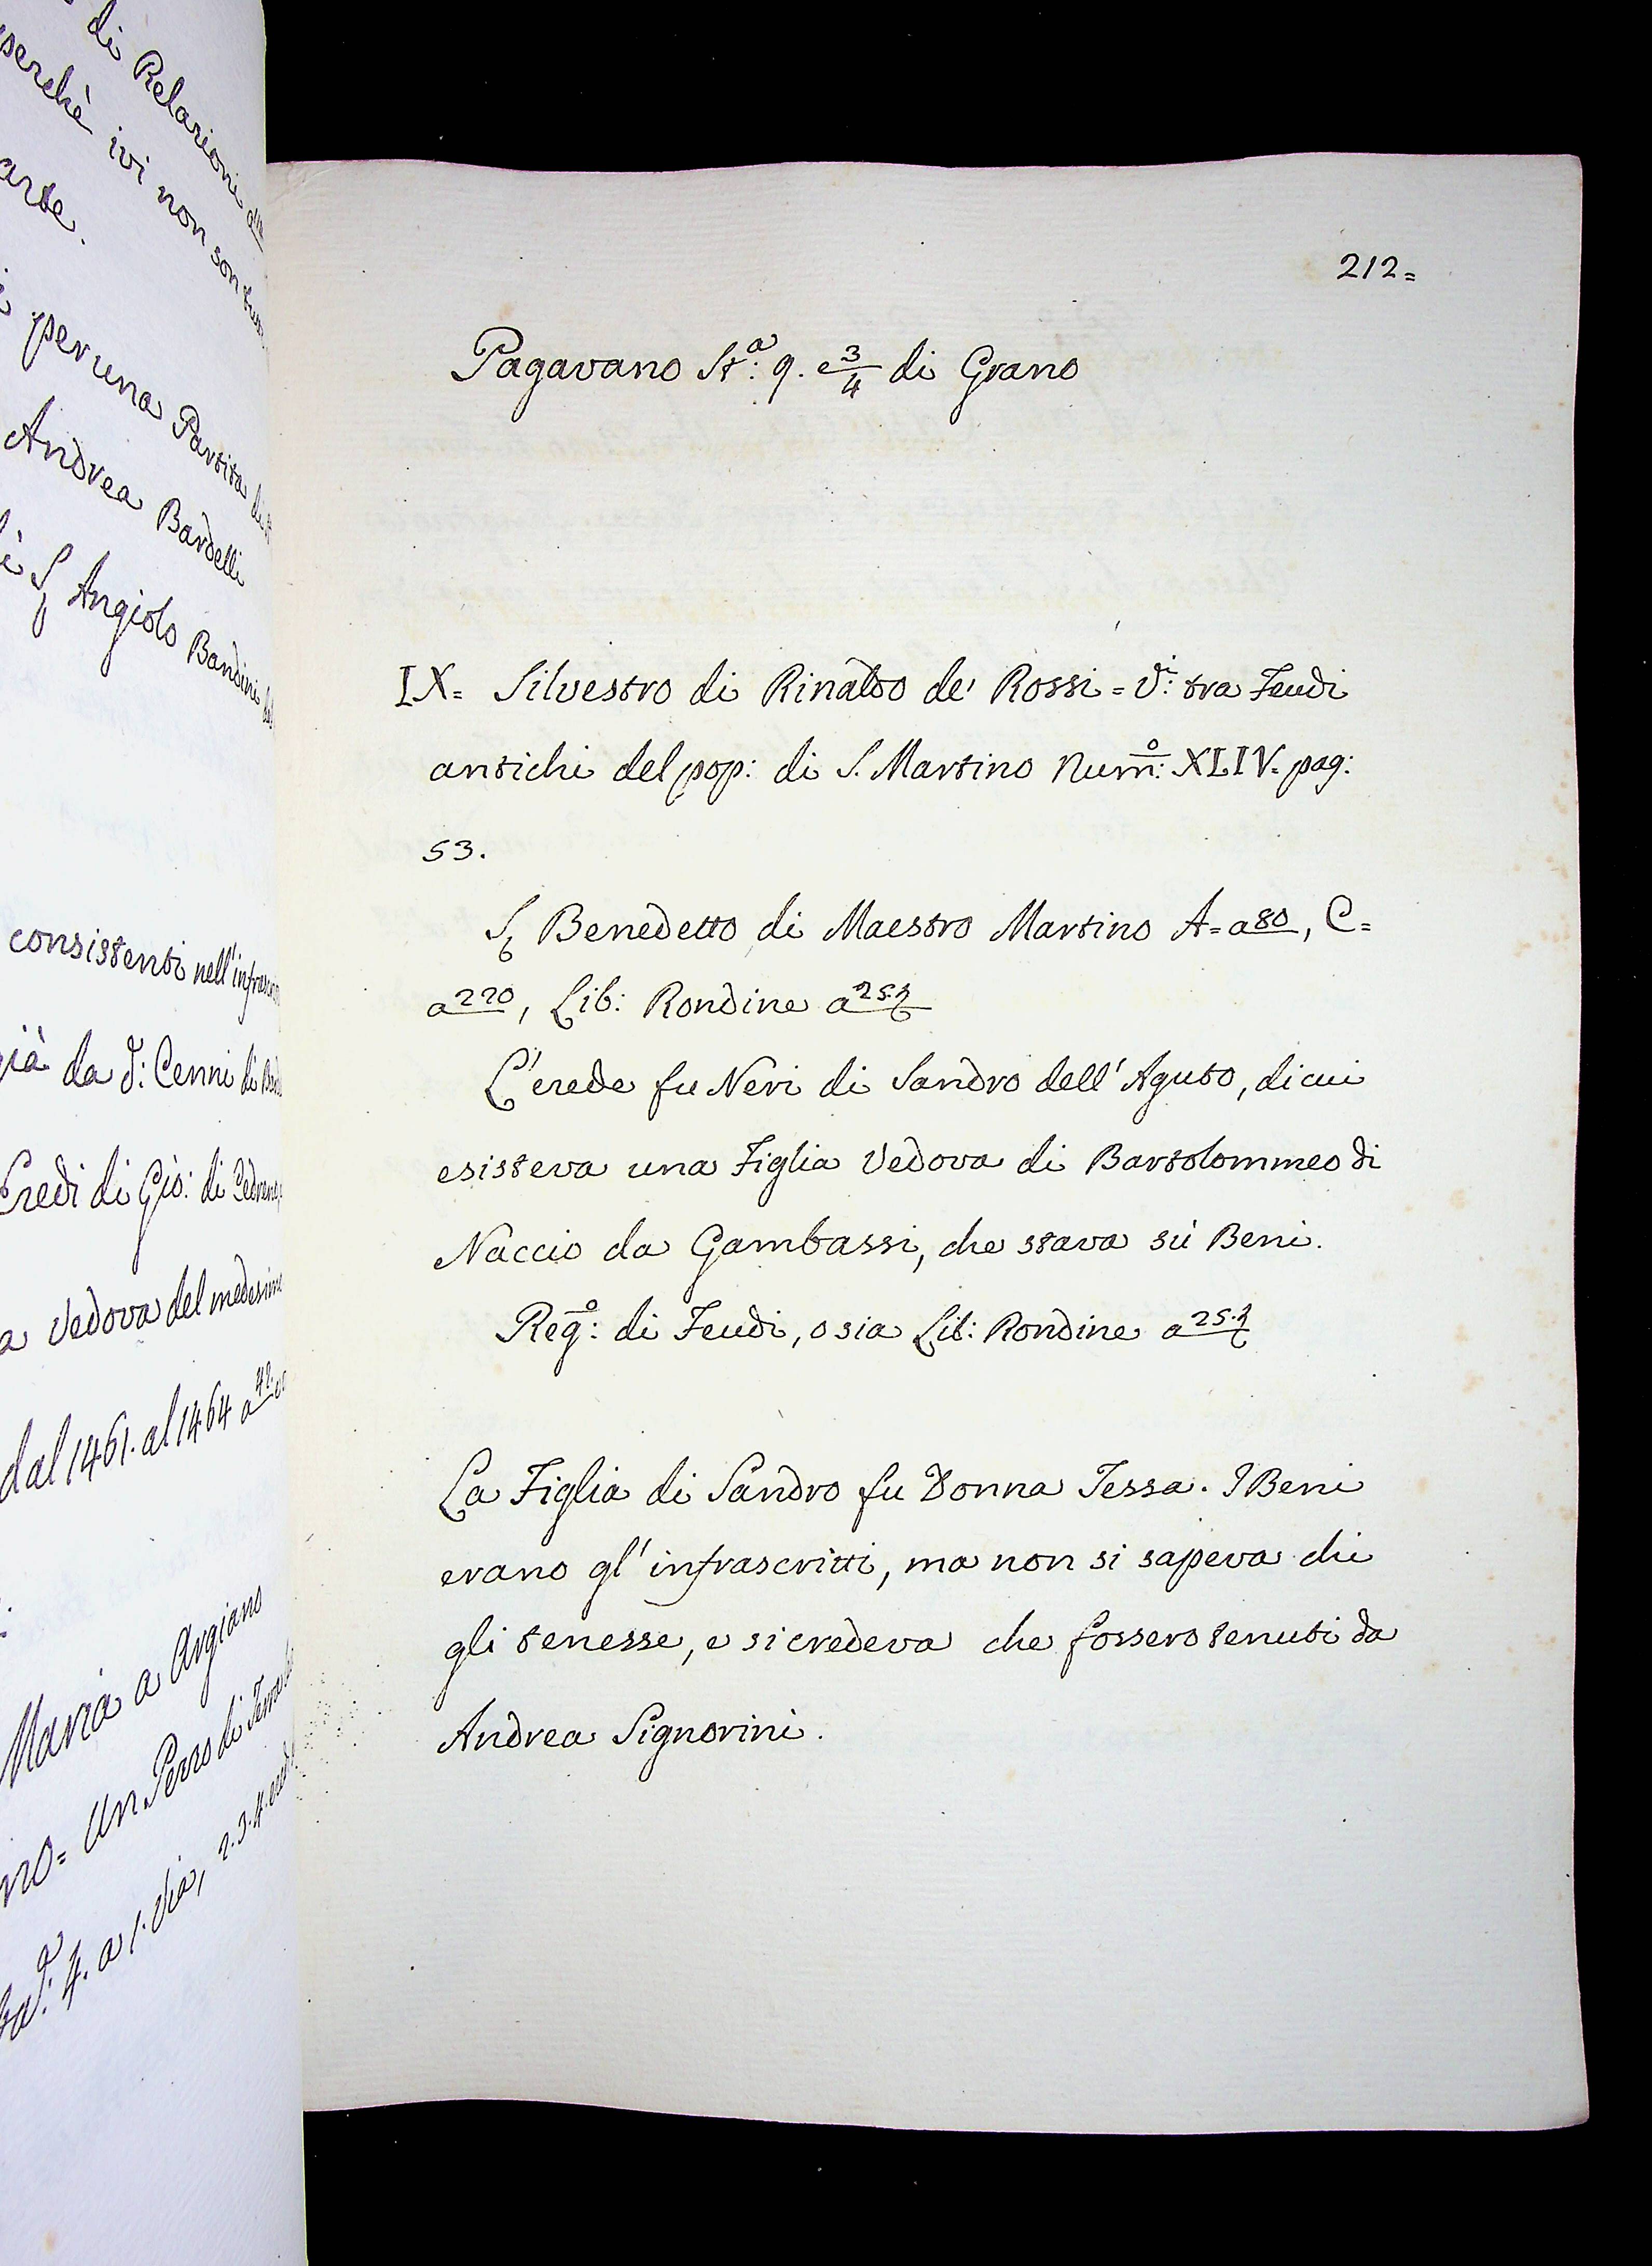 di Relazioni
perchè ivi non son
arte.
per una Partita
Andrea Bardelli
Angiolo Bandini
consistenti nell'infrascr
già da Cenni di
Eredi di Gio: di
a Vedova del medesimo
dal 1461. al 1464 a
Maria a Argiano
no= Un Pezzo di
4. a 1. Via, 2. 3. 4.
212=
Pagavano St.ª 9. e 3/4 di Grano
IX= Silvestro di Rinaldo de' Rossi = V.i: tra Feudi
antichi del pop: di S. Martino Num:º XLIV. pag:
53.
Benedetto di Maestro Martino A= a 80, C=
a 220, Lib: Rondine a 25.
L'erede fu Neri di Sandro dell'Aguto, di cui
esisteva una Figlia Vedova di Bartolommeo di
Naccio da Gambassi, che stava sù Beni.
Reg:º di Feudi, o sia Lib: Rondine a 25.
La Figlia di Sandro fu Donna Tessa. I Beni
erano gl'infrascritti, ma non si sapeva chi
gli tenesse, e si credeva che fossero tenuti da
Andrea Signorini.